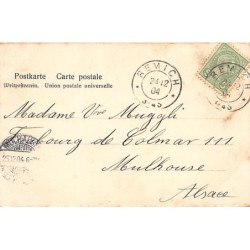 Postkarte Carte postale
Weltpostverein. Union postale universelle
REMICH
24 12
04
3-4S
REMICH
04
Madame Vve Muggli
Faubourg de Colmar 111
Mulhouse
Alsace